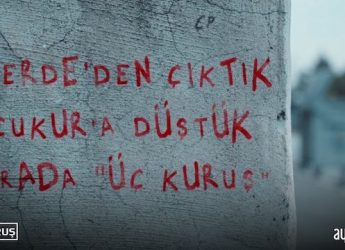 CP
ERDE'DEN ÇIKTIK
ÇUKUR'A DÜŞTÜK
RADA "ÜÇ KURUŞ"
RUŞ
au